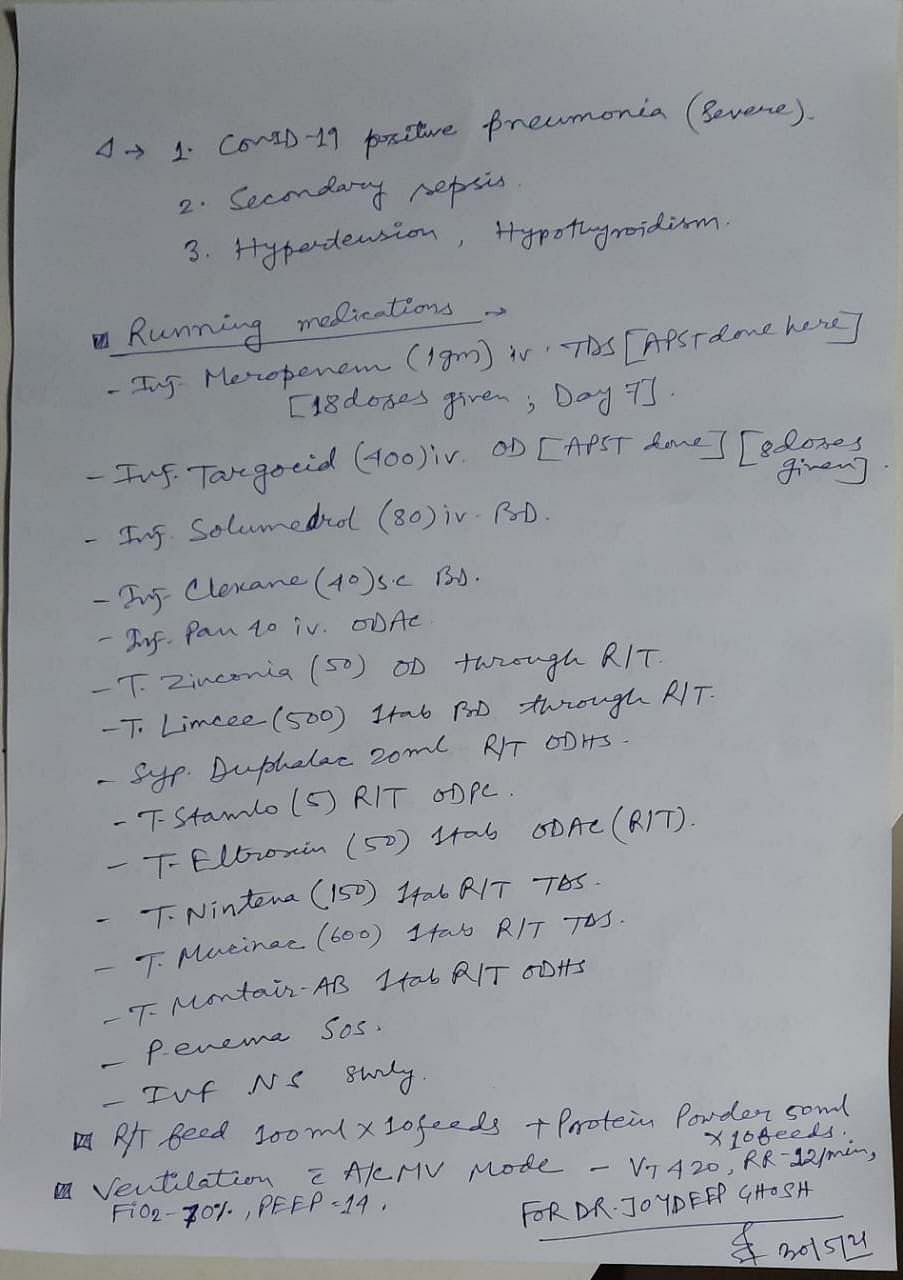 Δ → 1. COVID-19 positive pneumonia (Severe).
2. Secondary sepsis.
3. Hypertension, Hypothyroidism.
Running medications →
- Inj. Meropenem (1gm) iv. TDS [APST done here]
[18 doses given; Day 7].
- Inf. Targocid (400) iv. OD [APST done] [8 doses
given].
- Inj. Solumedrol (80) iv. BD.
- Inj. Clexane (40) s.c BD.
- Inj. Pan 40 iv. ODAC
- T. Zinconia (50) OD through R/T.
- T. Limcee (500) 1tab BD through R/T.
- Syp. Duphalac 20ml R/T ODHS.
- T. Stamlo (5) R/T ODPC.
- T. Eltroxin (50) 1tab ODAC (R/T).
- T. Nintena (150) 1tab R/T TDS.
- T. Mucinac (600) 1tab R/T TDS.
- T. Montair-AB 1tab R/T ODHS
- P-enema SOS.
- IVF NS
R/T feed 100ml x 10feeds + Protein Powder 50ml
x 10feeds.
Ventilation c̄ A/CMV Mode - VT 420, RR-22/min,
FiO2-70%, PEEP-14.
FOR DR. JOYDEEP GHOSH
30/5/21